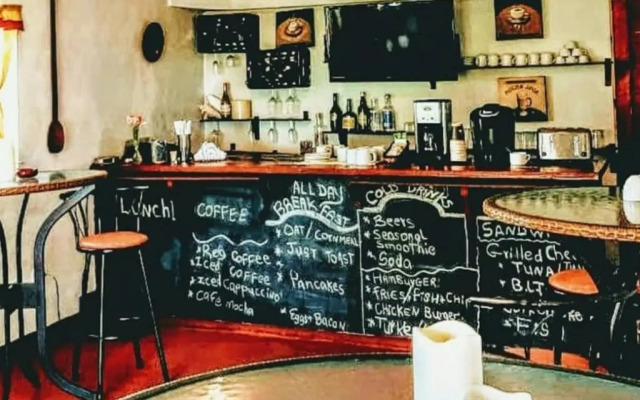 Lunch!
COFFEE
* Reg Coffee
* Iced Coffee
* Iced Cappuccino
* Café mocha
ALL DAY
BREAKFAST
* OAT / CORNMEAL
* JUST TOAST
* PANCAKES
* Eggs + Bacon
COLD DRINKS
* Beers
* Seasonal
Smoothie
* Soda
* HAMBURGER
* FRIES / FISH + CHIP
* CHICKEN Burger
SANDW
Grilled Che
TUNA
B.L.T